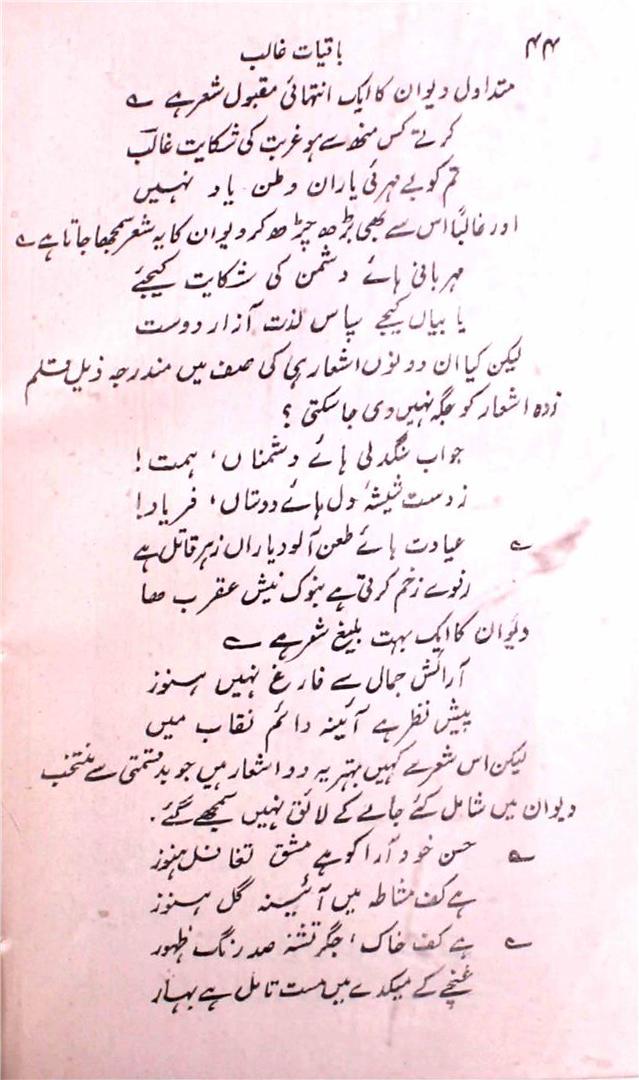 ۴۴
باقیات غالب
متداول دیوان کا ایک انتہائی مقبول شعر ہے ؎
کرتے کس منھ سے ہو غربت کی شکایت غالبؔ
تم کو بے مہرئی یاران وطن یاد نہیں
اور غالباً اس سے بھی بڑھ چڑھ کر دیوان کا یہ شعر سمجھا جاتا ہے ؎
مہربانی ہائے دشمن کی شکایت کیجئے
یا بیاں کیجے سپاس لذت آزار دوست
لیکن کیا ان دونوں اشعار ہی کی صف میں مندرجہ ذیل قلم
زدہ اشعار کو جگہ نہیں دی جا سکتی ؟
جواب سنگدلی ہائے دشمناں، ہمت!
ز دست شیشۂ دل ہائے دوستاں، فریاد!
؎ عیادت ہائے طعن آلود یاراں زہر قاتل ہے
رفوے زخم کرتی ہے بنوک نیش عقرب ھا
دیوان کا ایک بہت بلیغ شعر ہے ؎
آرائش جمال سے فارغ نہیں ہنوز
پیش نظر ہے آئینہ دائم نقاب میں
لیکن اس شعر سے کہیں بہتر یہ دو اشعار ہیں جو بدقسمتی سے منتخب
دیوان میں شامل کئے جانے کے لائق نہیں سمجھے گئے.
؎ حسن خود آرا کو ہے مشق تغافل ہنوز
ہے کف مشاطہ میں آئینہ گل ہنوز
؎ ہے کف خاک، جگر تشنہ صد رنگ ظہور
غنچے کے میکدے میں مست تامل ہے بہار